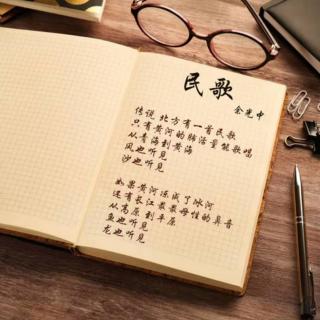 民歌
余光中
传说北方有一首民歌
只有黄河的肺活量能歌唱
从青海到黄海
风也听见
沙也听见
如果黄河冻成了冰河
还有长江最最母性的鼻音
从高原到平原
鱼也听见
龙也听见